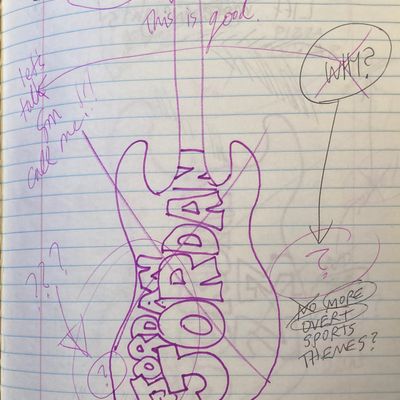 this is good.
let's
talk
gm !!!
call me!!
WHY?
JORDAN
JORDAN
? ? ?
?
?
NO MORE
OVERT
SPORTS
THEMES?